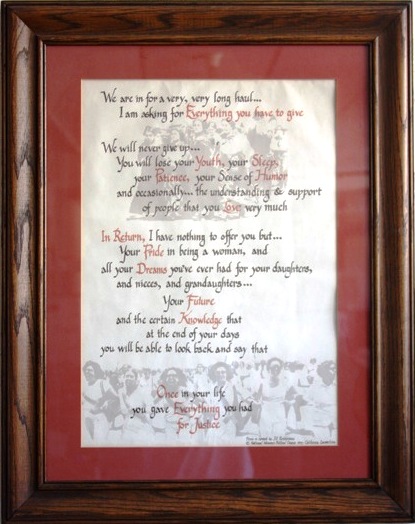 We are in for a very, very long haul...
I am asking for Everything you have to give
We will never give up...
You will lose your Youth, your Sleep,
your Patience, your Sense of Humor
and occasionally... the understanding & support
of people that you Love very much
In Return, I have nothing to offer you but...
Your Pride in being a woman, and
all your Dreams you've ever had for your daughters,
and nieces, and grandaughters...
Your Future
and the certain Knowledge that
at the end of your days
you will be able to look back and say that
Once in your life
you gave Everything you had
for Justice